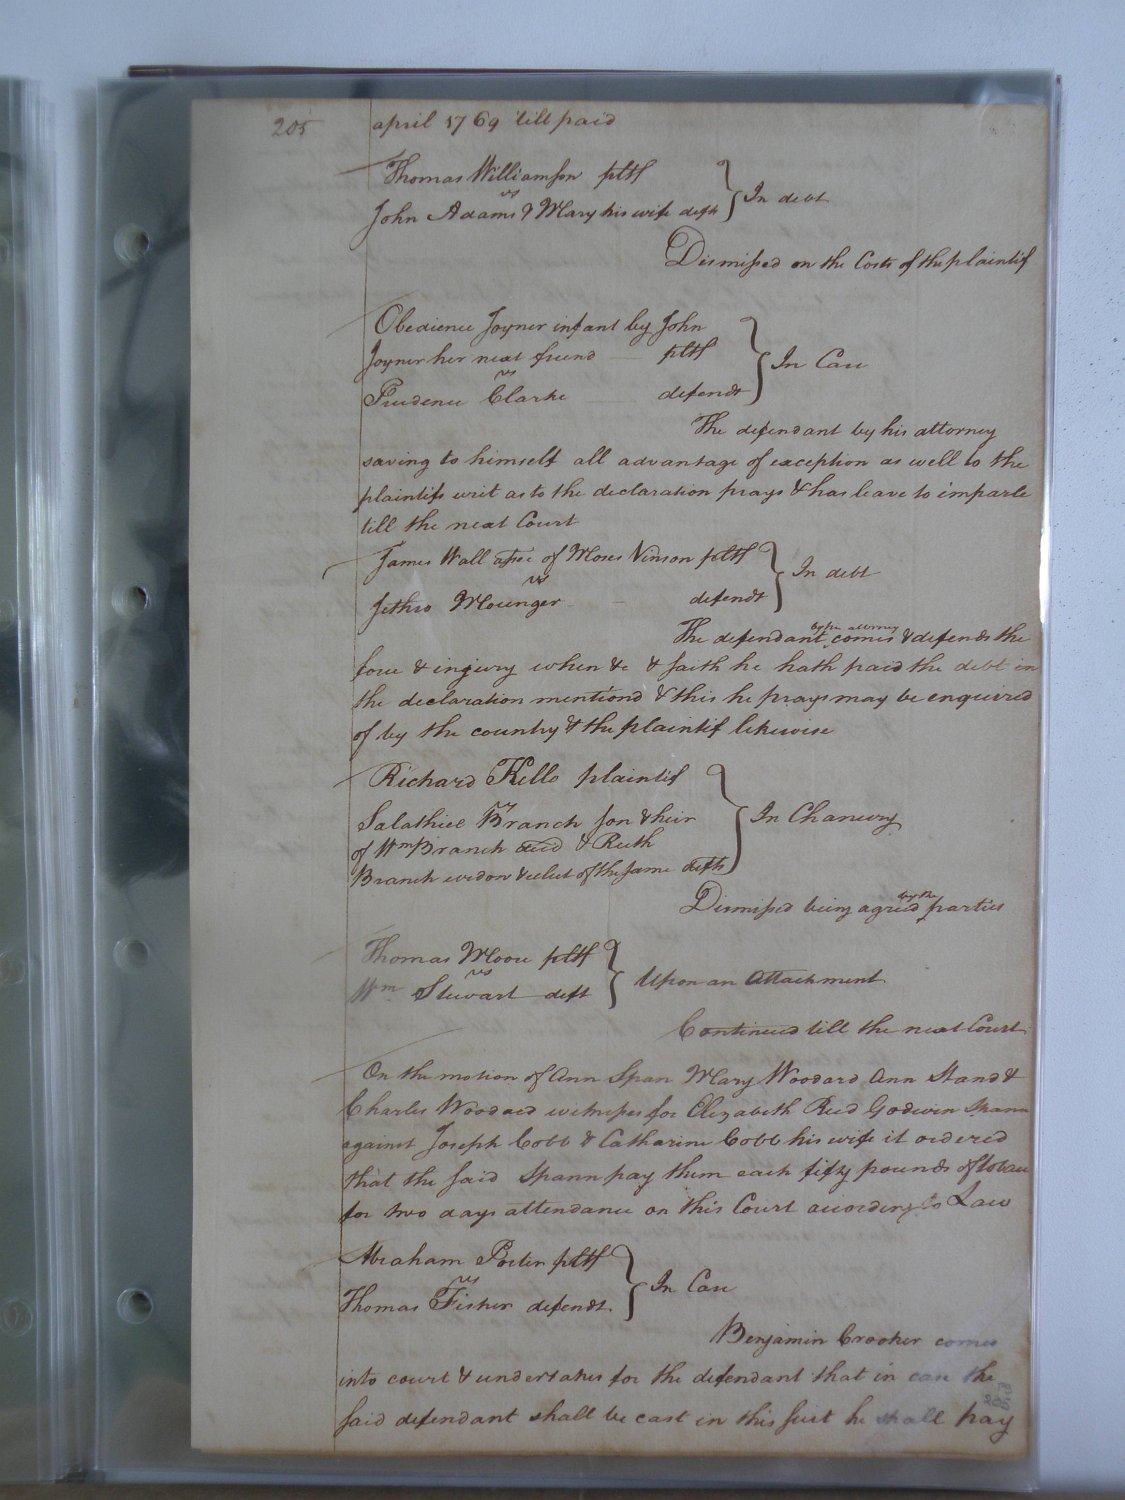 205
april 1769 till paid
Thomas Williamson pltf
vs
John Adams & Mary his wife defts
In debt
Dismissed on the Costs of the plaintif
Obedience Joyner infant by John
Joyner her next friend pltf
vs
Prudence Clarke defendt
In Case
The defendant by his attorney
saving to himself all advantage of exception as well to the
plaintifs writ as to the declaration prays & has leave to imparle
till the next Court
James Wall assee of Moses Vinson pltf
vs
Jethro Mounger defendt
In debt
by his attorney
The defendant comes & defends the
force & injury when &c & saith he hath paid the debt in
the declaration mentiond & this he prays may be enquired
of by the country & the plaintif likewise
Richard Kello plaintif
vs
Salathiel Branch son & heir
of Wm Branch decd & Ruth
Branch widow & relict of the same defts
In Chancery
by the
Dismissed being agreed parties
Thomas Moore pltf
vs
Wm Stewart deft
Upon an Attachment
Continued till the next Court
On the motion of Ann Span Mary Woodard Ann Stand &
Charles Woodard witnesses for Elizabeth Reed Godwin Spann
against Joseph Cobb & Catharine Cobb his wife it ordered
that the said Spann pay them each fifty pounds of tobacco
for two days attendance on this Court according to Law
Abraham Porter pltf
vs
Thomas Fisher defendt.
In Case
Benjamin Crocker comes
into court & undertakes for the defendant that in case the
said defendant shall be cast in this suit he shall pay